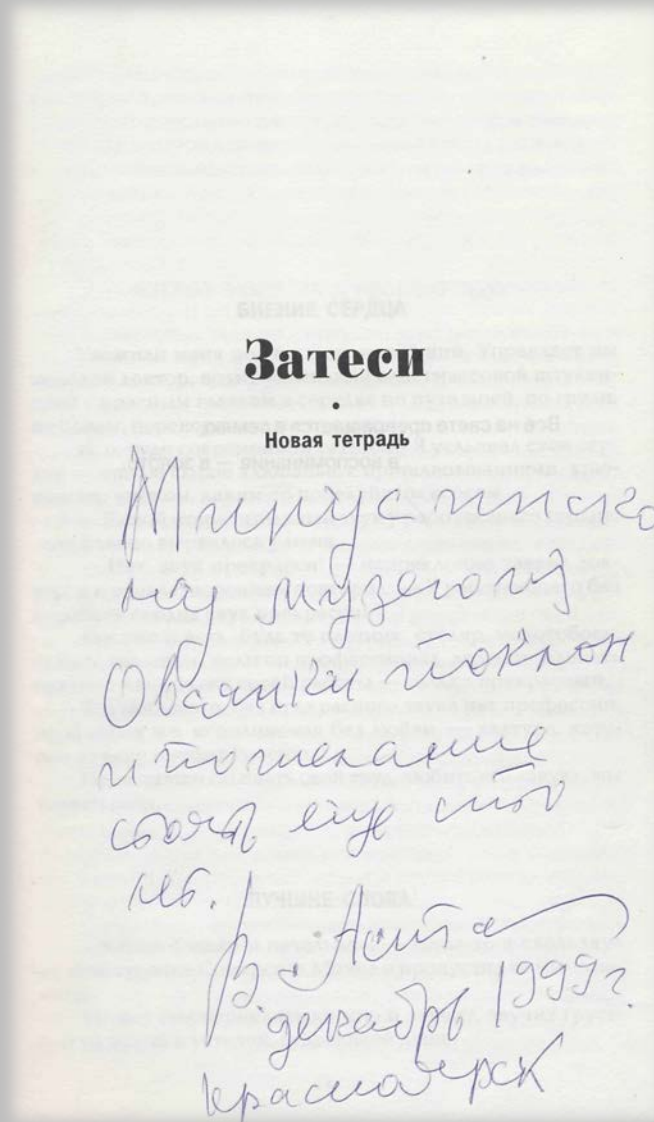 Затеси
•
Новая тетрадь
Минусинско
му музею из
Овсянки поклон
и пожелание
стоять еще сто
лет.
В. Аста
декабрь 1999г.
Красноярск